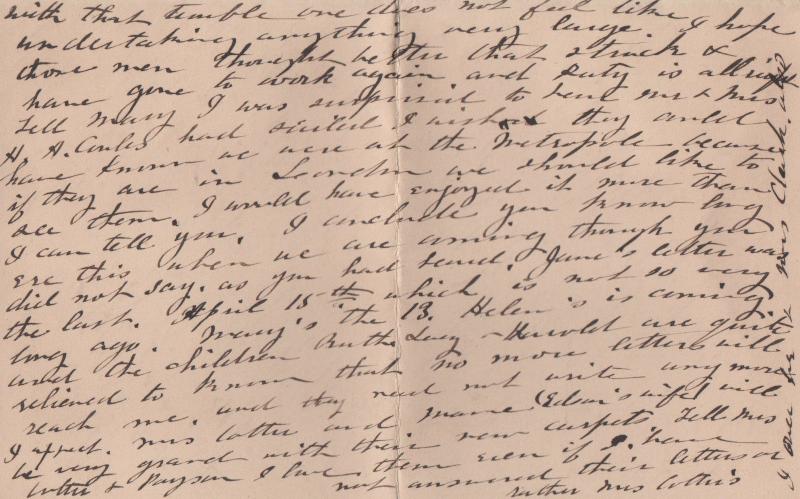 with that terrible one does not feel like
undertaking anything very large. I hope
those men thought better that struck &
have gone to work again and Suty is all right
Tell Mary I was surprised to hear Mr & Mrs
H. A. had sailed I wished they could
have known we were at the Metropole because
if they are in London we should like to
see them. I would have enjoyed it more than
I can tell you. I conclude you know long
ere this when we are coming though you
did not say. as you had Jane's letter was
the last. April 15th which is not so very
long ago. Mary's the 13. Helen's is coming
and the children Ruth, Lucy & Harold are quite
relieved to know that no more letters will
reach me. and they need not write any more
I expect. Mrs Cotter and Mame (Edow's wife) will
be very grand with their new carpets Tell Mrs
Cotter & Payson I love them even if I have
not answered their letters or
rather Mrs Cotter's
Mrs Clark